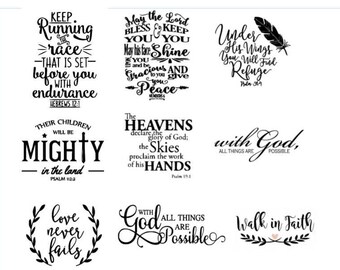 KEEP
Running
the
race
THAT IS SET
before you
WITH
endurance
HEBREWS 12:1
May the Lord
BLESS & KEEP
YOU YOU
May his face Shine
ON YOU and be
Gracious TO YOU AND give
YOU Peace
Under
His Wings
You Will Find
Refuge
Psalm 91:4
THEIR CHILDREN
WILL BE
MIGHTY
in the land
PSALM 112:2
The
HEAVENS
declare the
glory of God;
the Skies
proclaim the work
of his HANDS
Psalm 19:1
with God,
ALL THINGS ARE POSSIBLE
Love
never
fails
WITH
GOD ALL THINGS
ARE Possible
Walk in Faith